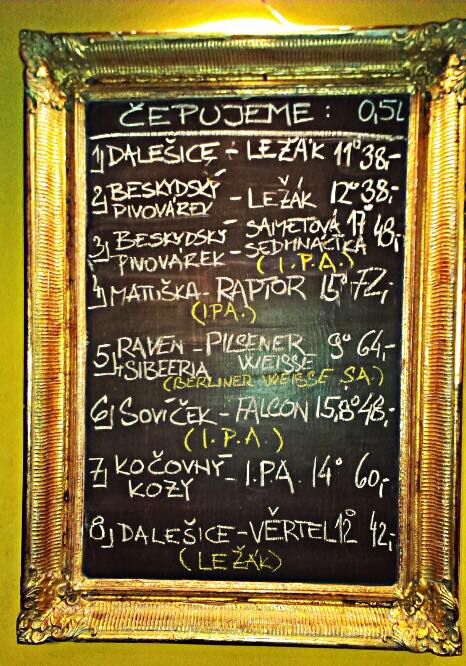 ČEPUJEME: 0,5L
1) DALEŠICE - LEŽÁK 11° 38,-
2) BESKYDSKÝ PIVOVÁREK - LEŽÁK 12° 38,-
3) BESKYDSKÝ PIVOVÁREK - SAMETOVÁ SEDMNÁCTKA 17° 48,-
(I.P.A.)
4) MATUŠKA - RAPTOR 15° 72,-
(IPA.)
5) RAVEN - PILSENER WEISSE 9° 64,-
+SIBEERIA
(BERLINER WEISSE SA.)
6) SOVÍČEK - FALCON 15,8° 48,-
(I.P.A.)
7) KOČOVNÝ KOZY - I.P.A. 14° 60,-
8) DALEŠICE - VĚRTEL 12° 42,-
(LEŽÁK)